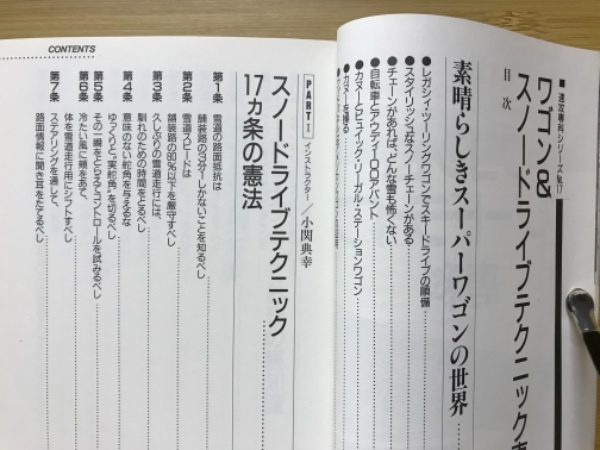 ■速攻専科シリーズ№17
ワゴン&
スノードライブテクニック
目次
素晴らしきスーパーワゴンの世界
●レガシィ・ツーリングワゴンでスキードライブの順備
●スタイリッシュなスノーチェーンがある
●チェーンがあれば、どんな雪も怖くない
●自転車とアウディ100アバント
●カヌーとビュイック・リーガル・ステーションワゴン
●カヌーを操る
CONTENTS
PART I
インストラクター/小関典幸
スノードライブテクニック
17ヵ条の憲法
第1条
雪道の路面抵抗は
舗装路の3分1しかないことを知るべし
第2条
雪道スピードは
舗装路の80%以下を厳守すべし
第3条
久しぶりの雪道走行には、
馴れのための時間をとるべし
第4条
意味のない舵角を与えるな
ゆっくりと“実舵角”を切るべし
第5条
その一瞬をとらえてコントロールを試みるべし
第6条
冷たい風に頬をあて、
体を雪道走行用にシフトすべし
第7条
ステアリングを通して、
路面情報に聞き耳をたてるべし